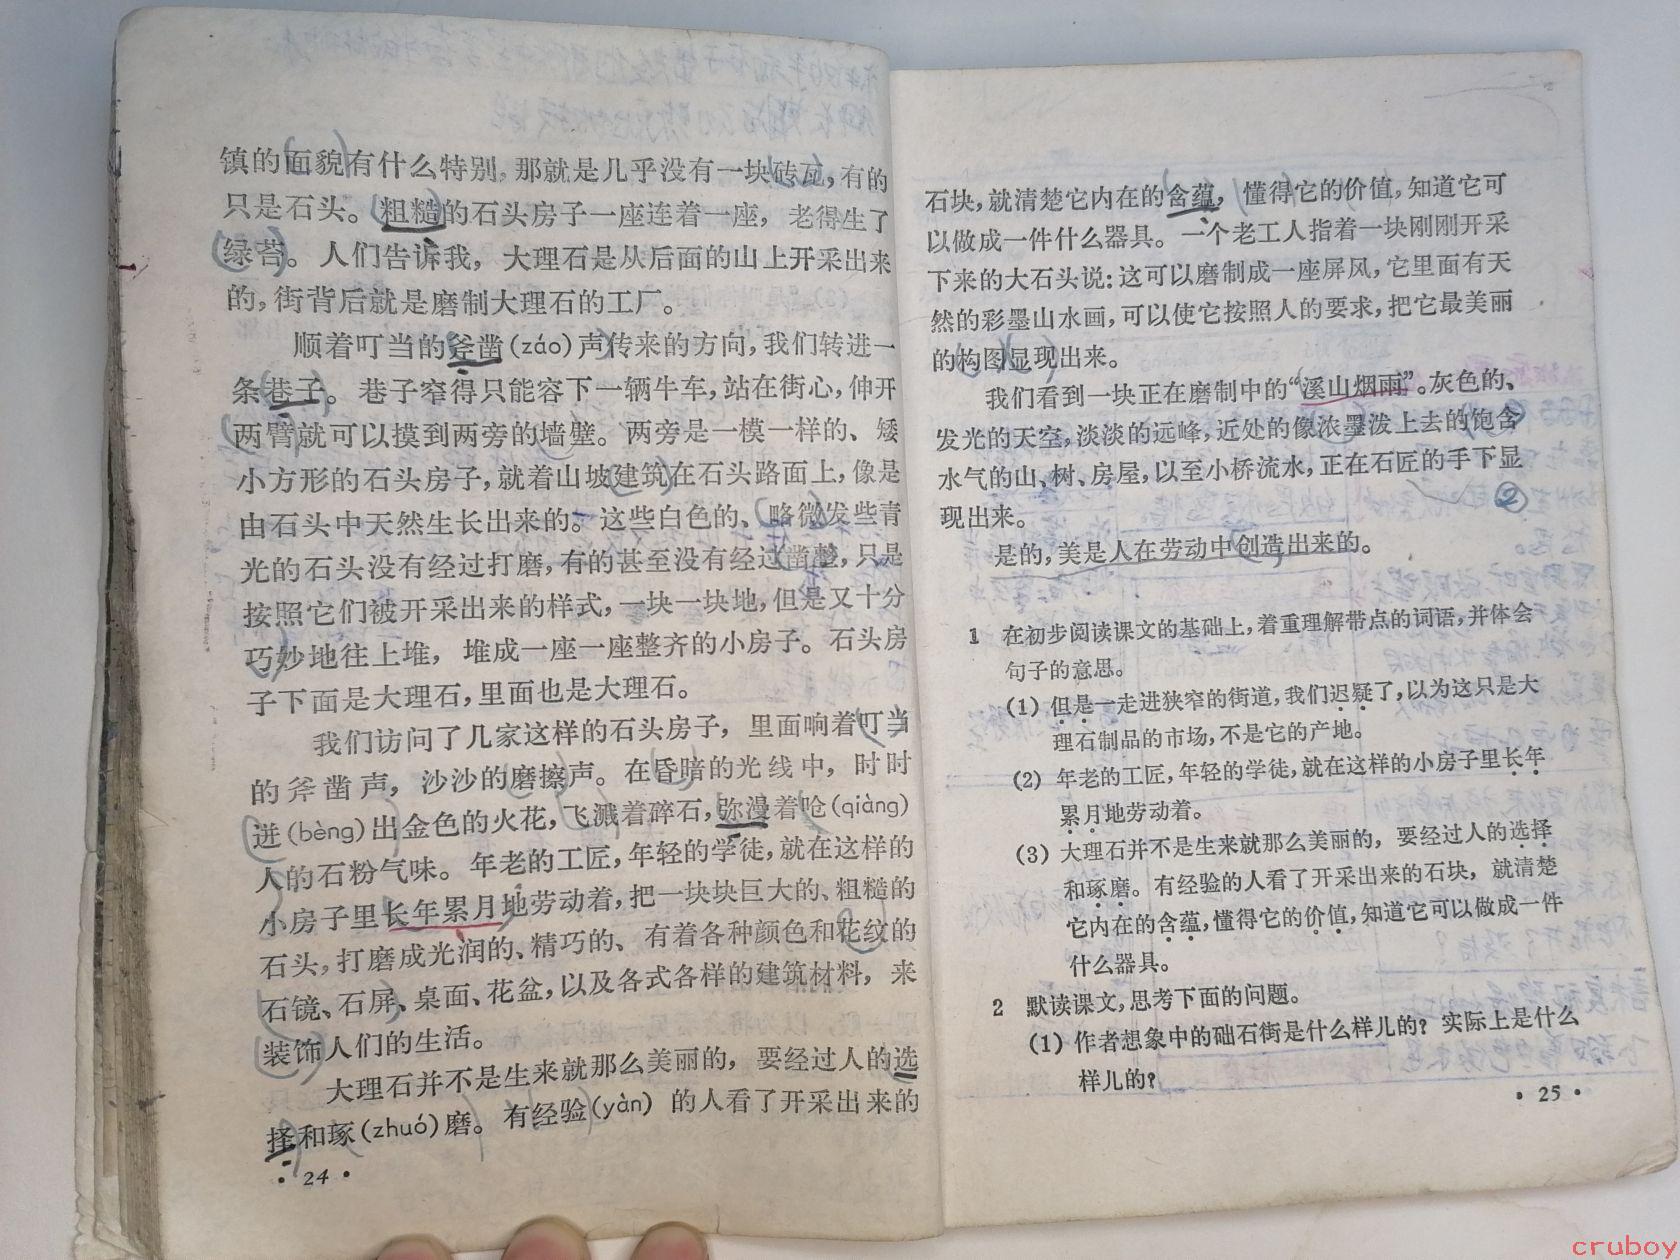 镇的面貌有什么特别,那就是几乎没有一块砖瓦,有的
只是石头。粗糙的石头房子一座连着一座，老得生了
绿苔。人们告诉我，大理石是从后面的山上开采出来
的,街背后就是磨制大理石的工厂。
顺着叮当的斧凿(záo)声传来的方向,我们转进一
条巷子。巷子窄得只能容下一辆牛车,站在街心,伸开
两臂就可以摸到两旁的墙壁。两旁是一模一样的、矮
小方形的石头房子,就着山坡建筑在石头路面上,像是
由石头中天然生长出来的。这些白色的、略微发些青
光的石头没有经过打磨,有的甚至没有经过凿整,只是
按照它们被开采出来的样式,一块一块地,但是又十分
巧妙地往上堆，堆成一座一座整齐的小房子。石头房
子下面是大理石,里面也是大理石。
我们访问了几家这样的石头房子，里面响着叮当
的斧凿声，沙沙的磨擦声。在昏暗的光线中，时时
迸(bèng)出金色的火花,飞溅着碎石,弥漫着呛(qiàng)
人的石粉气味。年老的工匠,年轻的学徒,就在这样的
小房子里长年累月地劳动着,把一块块巨大的、粗糙的
石头,打磨成光润的、精巧的、有着各种颜色和花纹的
石镜、石屏、桌面、花盆,以及各式各样的建筑材料，来
装饰人们的生活。
大理石并不是生来就那么美丽的，要经过人的选
择和琢(zhuó)磨。有经验(yàn)的人看了开采出来的
• 24 •
石块,就清楚它内在的含蕴，懂得它的价值,知道它可
以做成一件什么器具。一个老工人指着一块刚刚开采
下来的大石头说:这可以磨制成一座屏风,它里面有天
然的彩墨山水画,可以使它按照人的要求,把它最美丽
的构图显现出来。
我们看到一块正在磨制中的“溪山烟雨”。灰色的、
发光的天空,淡淡的远峰,近处的像浓墨泼上去的饱含
水气的山、树、房屋,以至小桥流水,正在石匠的手下显
②
现出来。
是的,美是人在劳动中创造出来的。
1 在初步阅读课文的基础上,着重理解带点的词语,并体会
句子的意思。
(1) 但是一走进狭窄的街道,我们迟疑了,以为这只是大
理石制品的市场,不是它的产地。
(2) 年老的工匠,年轻的学徒,就在这样的小房子里长年
累月地劳动着。
(3) 大理石并不是生来就那么美丽的，要经过人的选择
和琢磨。有经验的人看了开采出来的石块，就清楚
它内在的含蕴,懂得它的价值,知道它可以做成一件
什么器具。
2 默读课文,思考下面的问题。
(1) 作者想象中的础石街是什么样儿的? 实际上是什么
样儿的?
• 25 •
cruboy